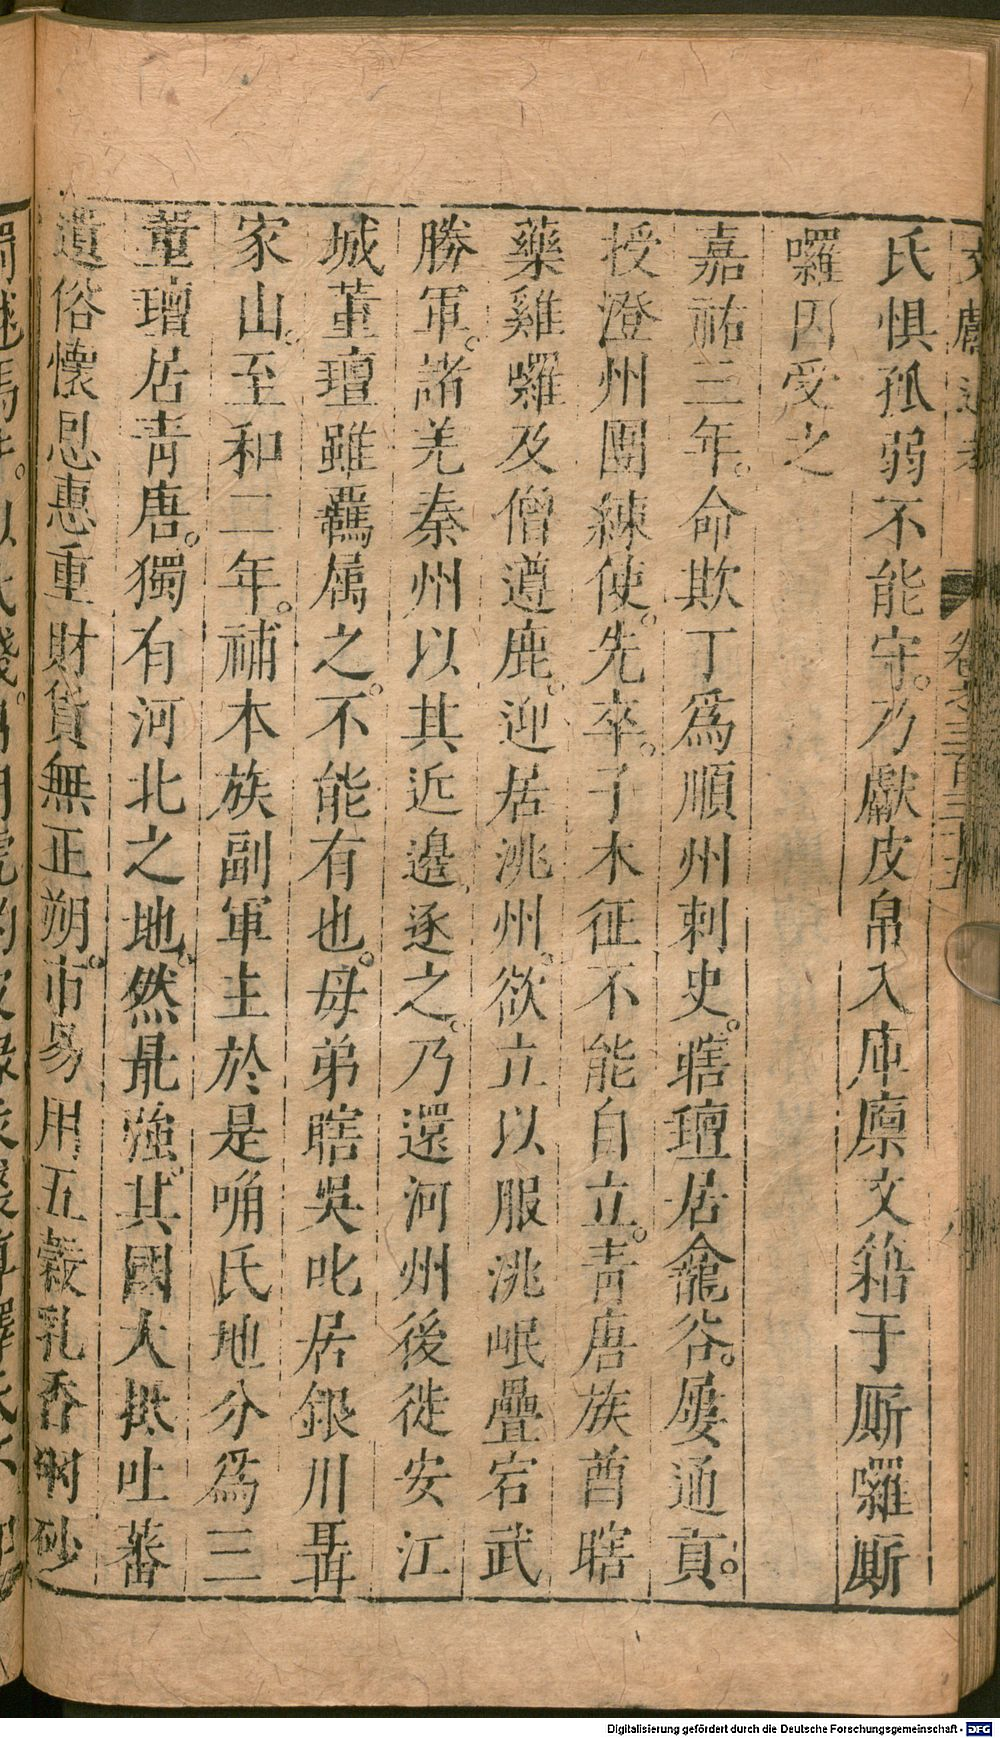 文獻通考 卷之三百三十五
氏惧孤弱不能守乃獻皮帛入庫廪文籍于厮囉厮
囉因受之
嘉祐三年命欺丁爲順州刺史瞎㼅居龕谷屢通貢
授澄州團練使先卒子木征不能自立青唐族酋瞎
藥雞囉及僧遵鹿迎居洮州欲立以服洮岷疊宕武
勝軍諸羌秦州以其近邊逐之乃還河州後徙安江
城董㼅雖羈属之不能有也母弟瞎吳叱居銀川聶
家山至和二年補本族副軍主於是唃氏地分爲三
董㼅居青唐獨有河北之地然最強其國大抵吐蕃
遺俗懷恩惠重財貨無正朔市易用五穀乳香硇砂
Digitalisierung gefördert durch die Deutsche Forschungsgemeinschaft - DFG